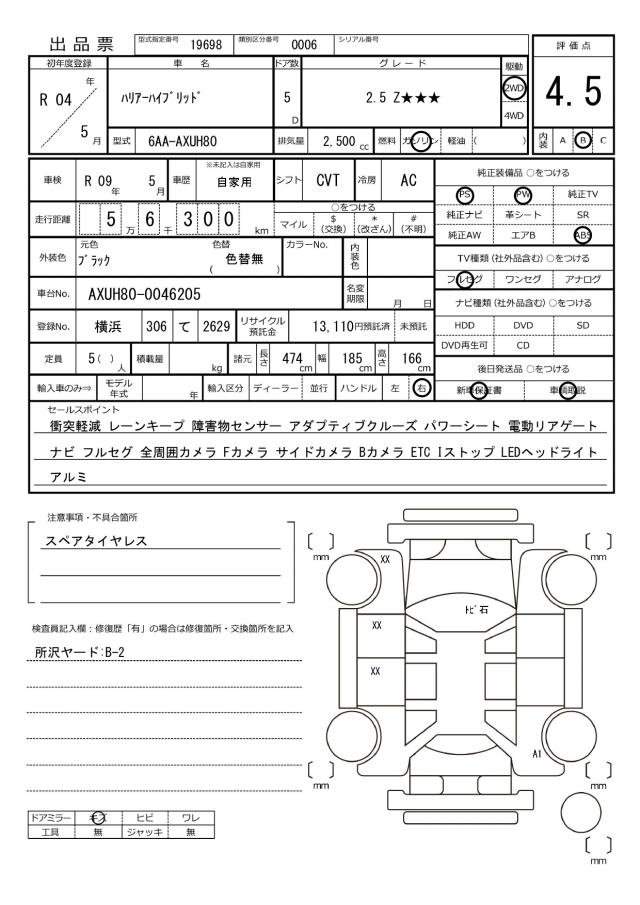 出品票 型式指定番号 19698 類別区分番号 0006 シリアル番号
評価点
4.5
内装 A B C
初年度登録 車名 ドア数 グレード 駆動
R 04 年 5 月
ﾊﾘｱｰﾊｲﾌﾞﾘｯﾄﾞ 5 D 2.5 Z★★★ 2WD 4WD
型式 6AA-AXUH80 排気量 2,500 cc 燃料 ガソリン 軽油 ( )
車検 R 09 年 5 月 車歴 ※未記入は自家用 自家用 シフト CVT 冷房 AC
走行距離 5 万 6 千 3 0 0 km
○をつける
マイル $ (交換) * (改ざん) # (不明)
外装色 元色 ﾌﾞﾗｯｸ 色替 ( 色替無 ) カラーNo. 内装色
車台No. AXUH80-0046205 名変期限 月 日
登録No. 横浜 306 て 2629 リサイクル預託金 13,110円預託済 未預託
定員 5( ) 人 積載量 kg 諸元 長さ 474 cm 幅 185 cm 高さ 166 cm
輸入車のみ⇒ モデル年式 年 輸入区分 ディーラー 並行 ハンドル 左 右
純正装備品 ○をつける
PS PW 純正TV
純正ナビ 革シート SR
純正AW エアB ABS
TV種類 (社外品含む) ○をつける
フルセグ ワンセグ アナログ
ナビ種類 (社外品含む) ○をつける
HDD DVD SD
DVD再生可 CD
後日発送品 ○をつける
新車保証書 車輌取説
セールスポイント
衝突軽減 レーンキープ 障害物センサー アダプティブクルーズ パワーシート 電動リアゲート
ナビ フルセグ 全周囲カメラ Fカメラ サイドカメラ Bカメラ ETC Iストップ LEDヘッドライト
アルミ
注意事項・不具合箇所
スペアタイヤレス
検査員記入欄：修復歴「有」の場合は修復箇所・交換箇所を記入
所沢ヤード:B-2
ドアミラー キズ ヒビ ワレ
工具 無 ジャッキ 無
〔 〕 mm
〔 〕 mm
XX
ﾄﾋﾞ石
XX
XX
A1
〔 〕 mm
〔 〕 mm
〔 〕 mm